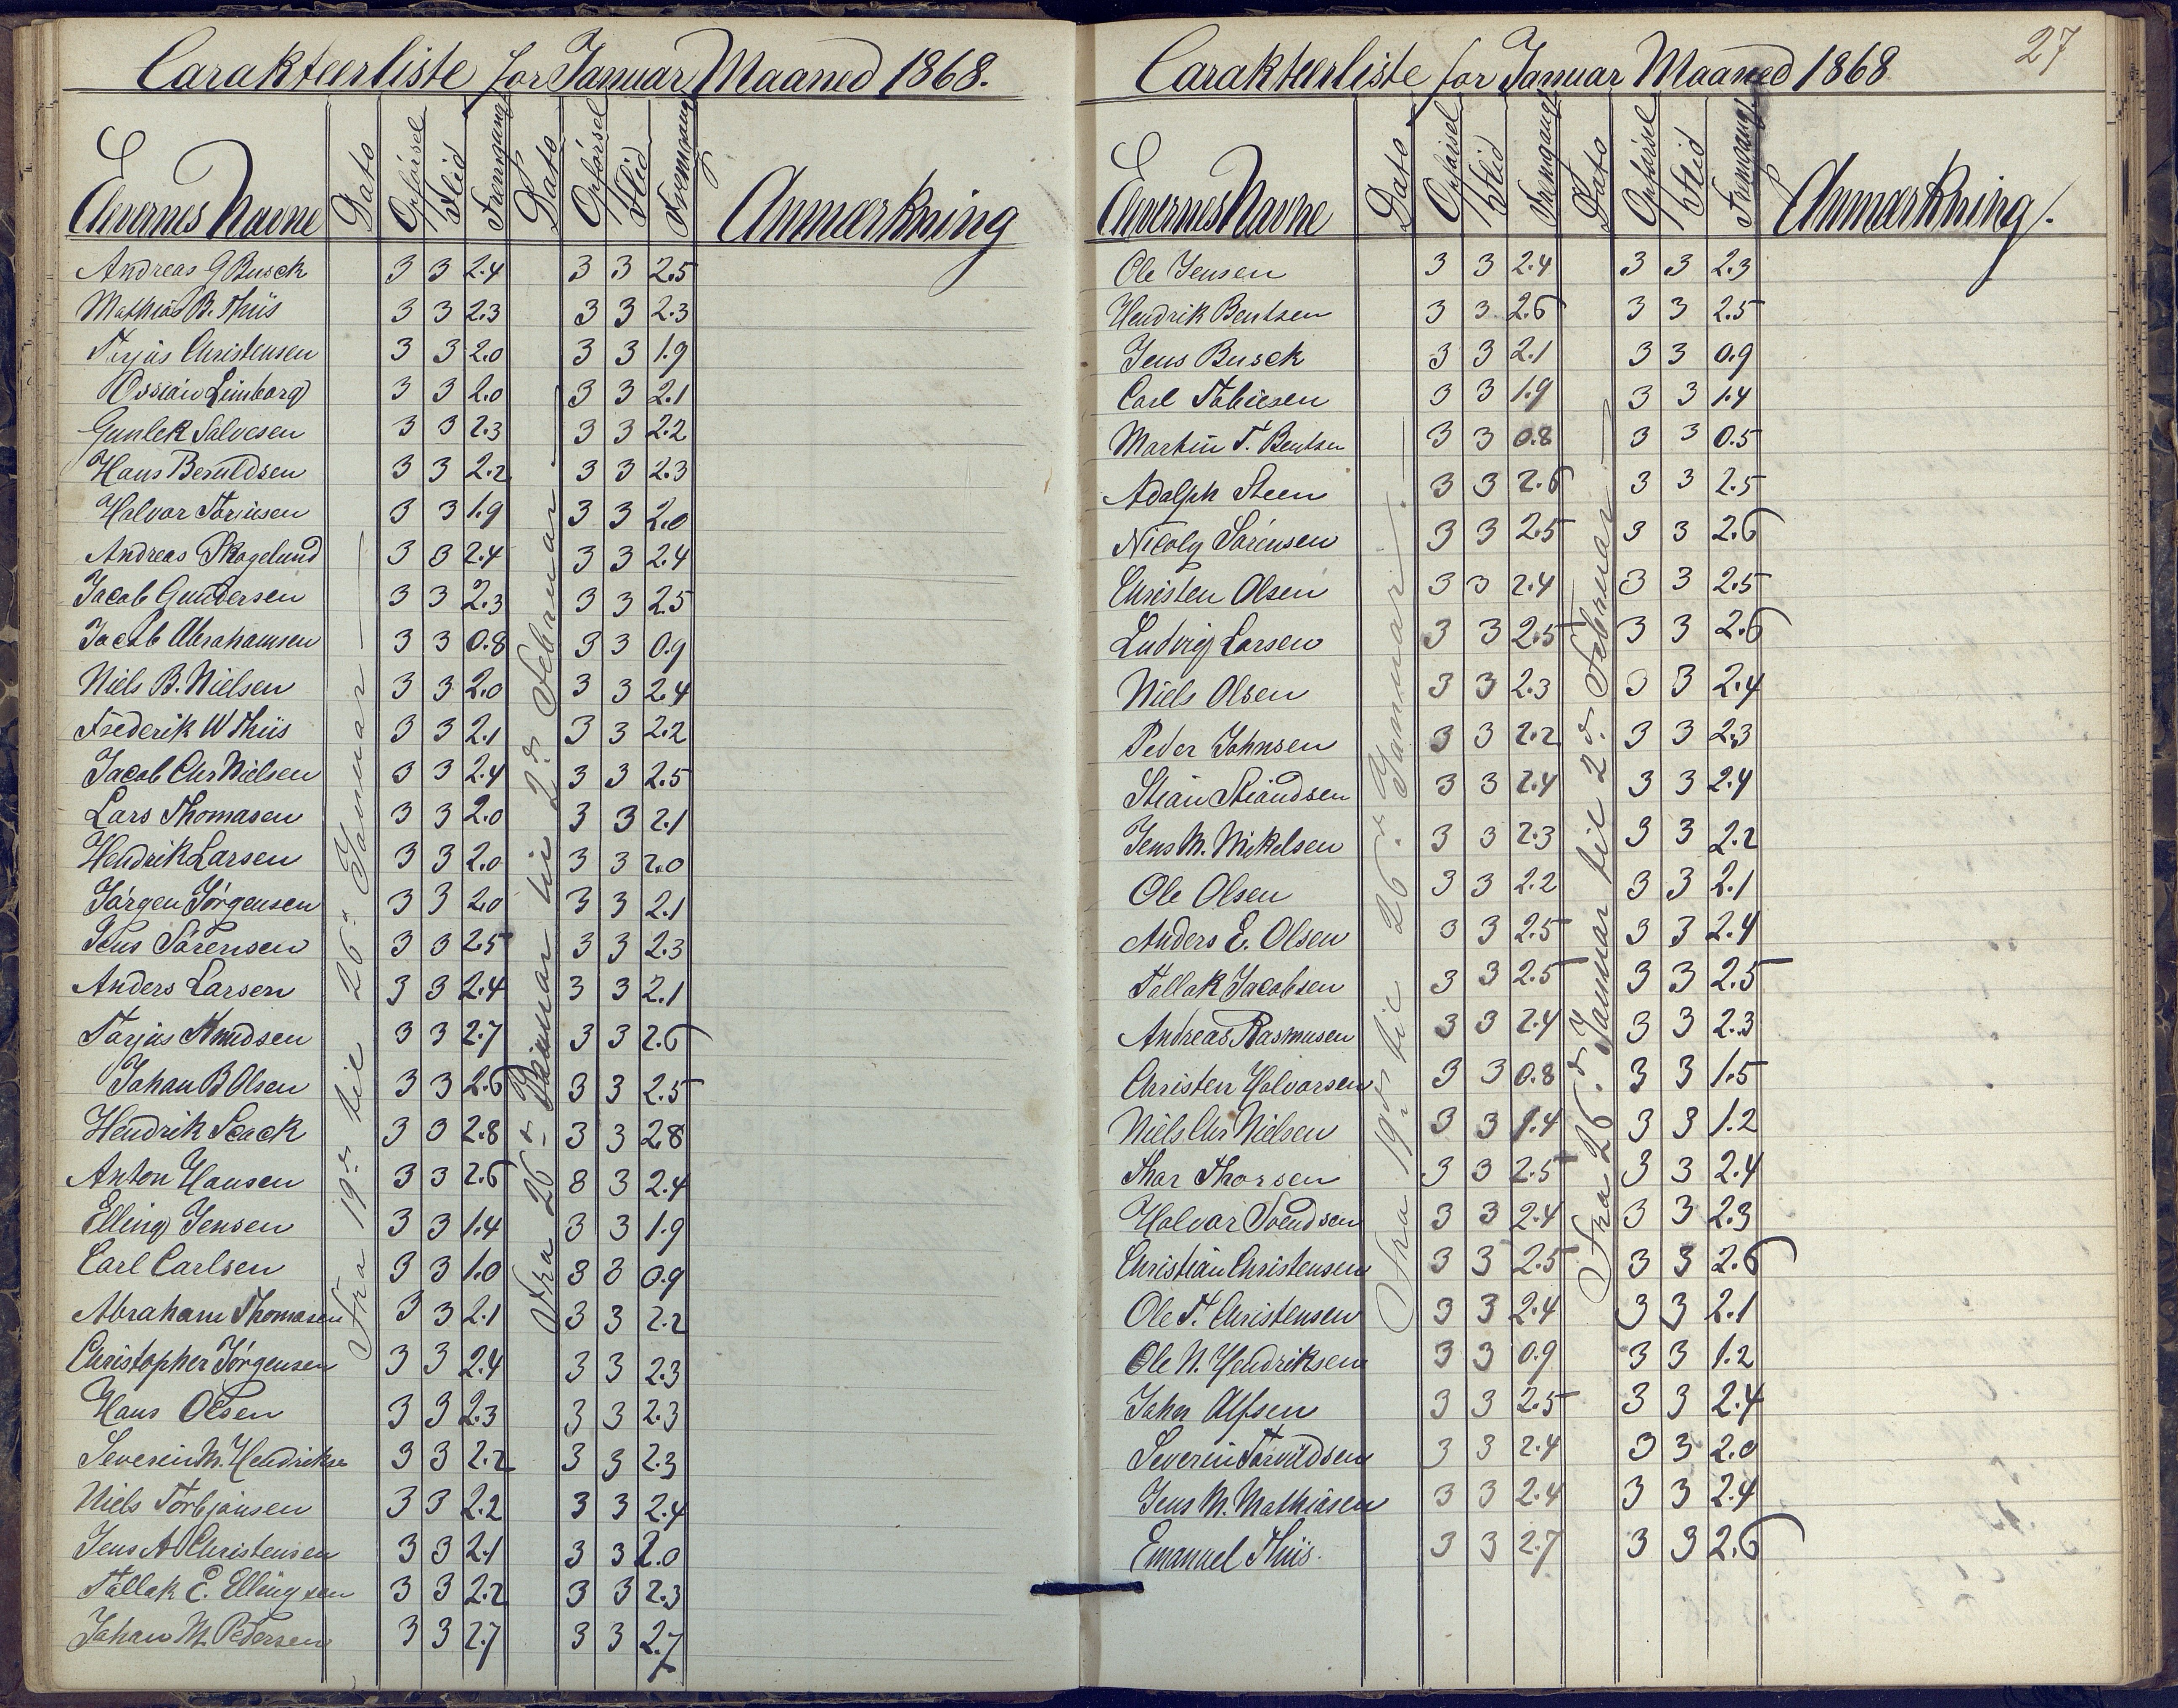 Carakteerliste for Januar Maaned 1868.
Elevernes Navne Dato Opførsel Flid Fremgang Dato Opførsel Flid Fremgang Anmærkning
Fra 19de til 26de Januar
Fra 26de Januar til 2den Februar
Andreas G Busck 3 3 2.4 3 3 2.5
Mathias B. Thiis 3 3 2.3 3 3 2.3
Terjus Christensen 3 3 2.0 3 3 1.9
Ossian Limborg 3 3 2.0 3 3 2.1
Gunlek Salvesen 3 3 2.3 3 3 2.2
Hans Beruldsen 3 3 2.2 3 3 2.3
Halvor Tørissen 3 3 1.9 3 3 2.0
Andreas Skogelund 3 3 2.4 3 3 2.4
Jacob Gundersen 3 3 2.3 3 3 2.5
Jacob Abrahamsen 3 3 0.8 3 3 0.9
Niels B. Nielsen 3 3 2.0 3 3 2.4
Frederik W Thiis 3 3 2.1 3 3 2.2
Jacob Chr Nielsen 3 3 2.4 3 3 2.5
Lars Thomasen 3 3 2.0 3 3 2.1
Hendrik Larsen 3 3 2.0 3 3 2.0
Jørgen Jørgensen 3 3 2.0 3 3 2.1
Jens Sørensen 3 3 2.5 3 3 2.3
Anders Larsen 3 3 2.4 3 3 2.1
Tarjus Knudsen 3 3 2.7 3 3 2.6
Johan B Olsen 3 3 2.6 3 3 2.5
Hendrik Seack 3 3 2.8 3 3 2.8
Anton Hansen 3 3 2.6 3 3 2.4
Elling Jensen 3 3 1.4 3 3 1.9
Carl Carlsen 3 3 1.0 3 3 0.9
Abraham Thomasen 3 3 2.1 3 3 2.2
Christopher Jørgensen 3 3 2.4 3 3 2.3
Hans Olsen 3 3 2.3 3 3 2.3
Severin M. Hendrikse 3 3 2.2 3 3 2.3
Niels Torbjønsen 3 3 2.2 3 3 2.4
Jens A Christensen 3 3 2.1 3 3 2.0
Tallak E. Ellingsen 3 3 2.2 3 3 2.3
Johan M. Pedersen 3 3 2.7 3 3 2.7
27
Carakteerliste for Januar Maaned 1868
Elevernes Navne Dato Opførsel Flid Fremgang Dato Opførsel Flid Fremgang Anmærkning.
Fra 19de til 26de Januar
Fra 26de Januar til 2den Februar
Ole Jensen 3 3 2.4 3 3 2.3
Hendrik Bentsen 3 3 2.6 3 3 2.5
Jens Busck 3 3 2.1 3 3 0.9
Carl Tobiesen 3 3 1.9 3 3 1.4
Martin T. Bentsen 3 3 0.8 3 3 0.5
Adolph Steen 3 3 2.6 3 3 2.5
Nicoly Sørensen 3 3 2.5 3 3 2.6
Christen Olsen 3 3 2.4 3 3 2.5
Ludvig Larsen 3 3 2.5 3 3 2.6
Niels Olsen 3 3 2.3 3 3 2.4
Peder Johnsen 3 3 2.2 3 3 2.3
Stian Stiandsen 3 3 2.4 3 3 2.4
Jens M. Mikelsen 3 3 2.3 3 3 2.2
Ole Olsen 3 3 2.2 3 3 2.1
Anders E. Olsen 3 3 2.5 3 3 2.4
Tallak Jacobsen 3 3 2.5 3 3 2.5
Andreas Rasmusen 3 3 2.4 3 3 2.3
Christen Halvorsen 3 3 0.8 3 3 1.5
Niels Chr Nielsen 3 3 1.4 3 3 1.2
Thor Thorsen 3 3 2.5 3 3 2.4
Halvor Svendsen 3 3 2.4 3 3 2.3
Christian Christensen 3 3 2.5 3 3 2.6
Ole T. Christensen 3 3 2.4 3 3 2.1
Ole N. Hendriksen 3 3 0.9 3 3 1.2
John Alfsen 3 3 2.5 3 3 2.4
Severin Tarvildsen 3 3 2.4 3 3 2.0
Jens M. Mathiasen 3 3 2.4 3 3 2.4
Emanuel Thiis. 3 3 2.7 3 3 2.6